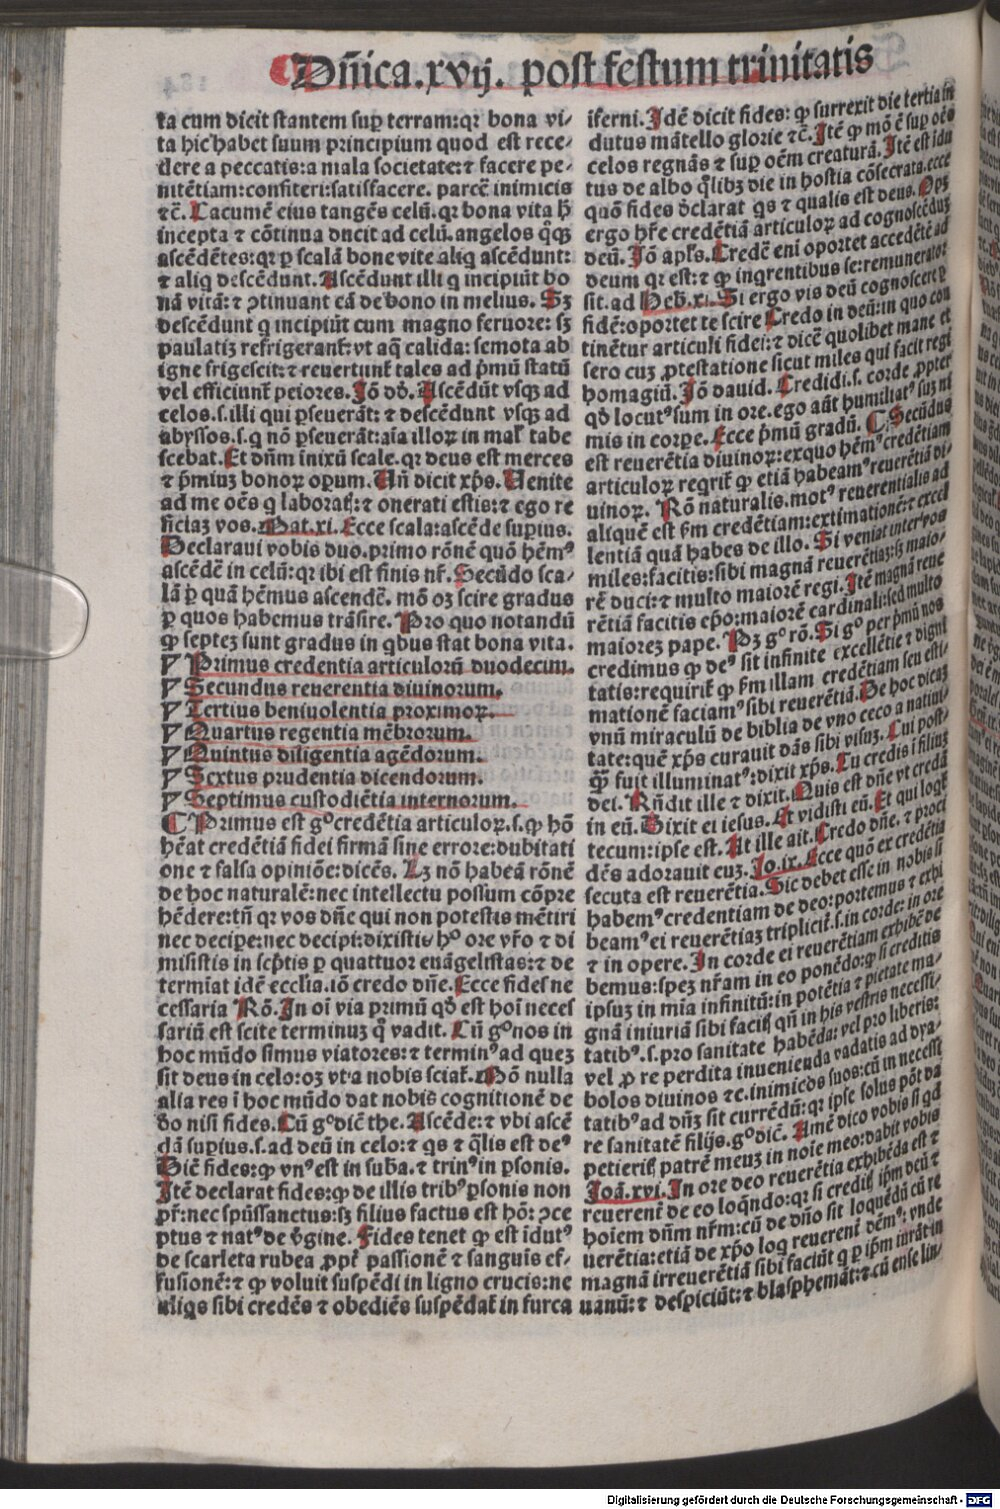 Dñica.xvij. post festum trinitatis
ta cum dicit stantem suꝑ terram:qꝛ bona vi⸗
ta hic habet suum principium quod est rece⸗
dere a peccatis:a mala societate:⁊ facere pe⸗
nitētiam:confiteri:satisfacere. parcē inimicis
⁊c̄. Cacumē eius tangēs celū.qꝛ bona vita h̄
incepta ⁊ cōtinua ducit ad celū.angelos qͦqꝫ
ascēdētes:qꝛ ꝑ scalā bone vite aliq̄ ascēdunt:
⁊ aliq̄ descēdunt. Ascēdunt illi q̄ incipiūt bo
nā vitā: ⁊ ꝯtinuant eā de bono in melius. Sꝫ
descēdunt q̄ incipiūt cum magno feruore: sꝫ
paulatiꝫ refrigerant̄:vt aq̄ calida: semota ab
igne frigescit:⁊ reuertunt̄ tales ad p̄mū statū
vel efficiunt̄ peiores. Jō dꝺ. Ascēdūt vsqꝫ ad
celos.s.illi qui ꝑseuerāt: ⁊ descēdunt vsqꝫ ad
abyssos.s.q̄ nō ꝑseuerāt:aīa illoꝝ in mal̄ tabe
scebat. Et dūm īnixū scale.qꝛ deus est merces
⁊ p̄miuꝫ bonoꝝ opum. Uñ dicit xp̄s. Uenite
ad me oēs q̄ laborat̄:⁊ onerati estis:⁊ ego re
ficiaꝫ vos. Mat.xi. Ecce scala:ascēde superius.
Declaraui vobis duo.primo rōnē quō hēmꝰ
ascēdē in celū:qꝛ ibi est finis nr̄. Secūdo sca⸗
lā ꝑ quā hēmus ascendē. mō oꝫ scire gradus
ꝑ quos habemus trāsire. Pro quo notandū
ꝙ septeꝫ sunt gradus in qͥbus stat bona vita.
Primus credentia articulorū duodecim.
Secundus reuerentia diuinorum.
Tertius beniuolentia proximoꝝ.
Quartus regentia mēbrorum.
Quintus diligentia agēdorum.
Sextus prudentia dicendorum.
Septimus custodiētia internorum.
Primus est gͦ credētia articuloꝝ.s.ꝙ hō
hēat credētiā fidei firmā sine errore:dubitati
one ⁊ falsa opiniōe:dicēs. Lꝫ nō habeā rōnē
de hoc naturalē:nec intellectu possum cōpre
hēdere:tñ qꝛ vos dñe qui non potestis mētiri
nec decipe:nec decipi:dixistis hͦ ore vr̄o ⁊ di
misistis in scp̄tis ꝑ quattuor euāgelistas:⁊ de
termīat idē ecclīa.iō credo dñe. Ecce fides ne
cessaria Rō. Jn oī via primū qꝺ est hoī neces
sariū est scite terminuꝫ qͦ vadit. Cū gͦ nos in
hoc mūdo simus viatores:⁊ terminꝰ ad queꝫ
sit deus in celo:oꝫ vt a nobis sciat̄. Mō nulla
alia res ī hoc mūdo dat nobis cognitionē de
ꝺo nisi fides. Cū gͦ dicē the. Ascēde:⁊ vbi ascē
dā superius.s.ad deū in celo:⁊ qͥs ⁊ qͣlis est deꝰ
Dicē fides:ꝙ vnꝰ est in sub̄a.⁊ trinꝰ in ꝑsonis.
Jtē declarat fides:ꝙ de illis tribꝰ ꝑsonis non
pr̄:nec spūssanctus:sꝫ filius factus est hō: ꝯce
ptus ⁊ natꝰ de v̄gine. Fides tenet ꝙ est īdutꝰ
de scarleta rubea ꝓpt̄ passionē ⁊ sanguīs ef⸗
fusionē:⁊ ꝙ voluit suspēdi in ligno crucis:ne
aliqͥs sibi credēs ⁊ obediēs suspēdat̄ in furca
iferni. Jdē dicit fides: ꝙ surrexit die tertia in
dutus mātello glorie ⁊c̄. Jtē ꝙ mō ē suꝑ oēs
celos regnās ⁊ suꝑ oēm creaturā. Jtē est īdu
tus de albo qͦlibꝫ die in hostia cōsecrata.ecce
quō fides ꝺclarat qͥs ⁊ qualis est deus. Opꝫ
ergo hr̄e credētiā articuloꝝ ad cognoscēduꝫ
deū. Jō apl̄s. Credē eni oportet accedētē ad
deum qꝛ est:⁊ ꝙ inqͥrentibus se:remunerator
sit.ad Heb.xi. Si ergo vis deū cognoscere ꝑ
fidē:oportet te scire Credo in deū:in quo con
tinētur articuli fidei:⁊ dicē quolibet mane et
sero cuꝫ ꝓtestatione sicut miles qui facit regi
homagiū. Jō dauid. Credidi.s. corde ꝓpter
qꝺ locutꝰ sum in ore.ego aūt humiliatꝰ suꝫ nī
mis in corpe. Ecce p̄mū gradū. Secūdus
est reuerētia diuinoꝝ:exquo hēmꝰ credētiam
articuloꝝ reqͥrit̄ ꝙ etiā habeamꝰ reuerētiā di⸗
uinoꝝ. Rō naturalis.motꝰ reuerentialis ad
aliquē est ẜm credētiam:extimationē:⁊ excel
lentiā quā habes de illo. Si veniat inter vos
miles:facitis:sibi magnā reuerētiaꝫ:sꝫ maio⸗
rē duci:⁊ multo maiorē regi. Jtē magnā reue
rētiā facitis epō:maiorē cardinali:sed multo
maiorez pape. Pꝫ gͦ rō. Si gͦ per p̄mū nos
credimus ꝙ deꝰ sit infinite excellētie ⁊ digni
tatis:requirit̄ ꝙ ẜm illam credētiam seu esti⸗
mationē faciamꝰ sibi reuerētiā. De hoc dicaꝫ
vnū miraculū de biblia de vno ceco a natiui⸗
tate:quē xp̄s curauit dās sibi visuꝫ. Cui post⸗
qͣꝫ fuit illuminatꝰ:dixit xp̄s. Tu credis ī filiuꝫ
dei. Rñdit ille ⁊ dixit. Quis est dñe vt credā
in eū. Dixit ei iesus. Et vidisti eū. Et qui loqͥt̄
tecum:ipse est. At ille ait. Credo dñe. ⁊ proci
dēs adorauit euꝫ. Jo.ix. Ecce quō ex credētia
secuta est reuerētia. Sic debet esse in nobis si
habemꝰ credentiam de deo:portemus ⁊ exhi
beamꝰ ei reuerētiaꝫ triplicit̄.s.in corde: in ore
⁊ in opere. Jn corde ei reuerētiam exhibē de
bemus:speꝫ nr̄am in eo ponēdo:ꝙ si creditis
ipsuꝫ in mīa infinitū:in potētia ⁊ pietate ma⸗
gnā iniuriā sibi facit̄ qñ in his vestris necessi⸗
tatibꝰ.s.pro sanitate habēda: vel pro liberis:
vel ꝓ re perdita inuenienda vadatis ad dya⸗
bolos diuinos ⁊c.inimicos suos:cū in necessi
tatibꝰ ad dñꝫ sit currēdū: qꝛ ipse solus pōt da
re sanitatē filijs.gͦ dicē. Amē dico vobis si qͥd
petierit̄ patrē meuꝫ in noīe meo:dabit vobis
Joā.xvi. Jn ore deo reuerētia exhibēda est ⁊
reuerent̄ de eo loqͣndo: qꝛ si credit̄ ip̄m deū ⁊
hoīem dūm nr̄m:cū de dño sit loquēdū cū re
uerētia:etiā de xp̄o loq̄ reuerent̄ dēmꝰ: vnde
magnā irreuerētiā sibi faciūt q̄ ꝑ ip̄m iurāt in
uanū: ⁊ despiciūt: ⁊ blasphemāt: ⁊ cū ense lin⸗
Digitalisierung gefördert durch die Deutsche Forschungsgemeinschaft - DFG